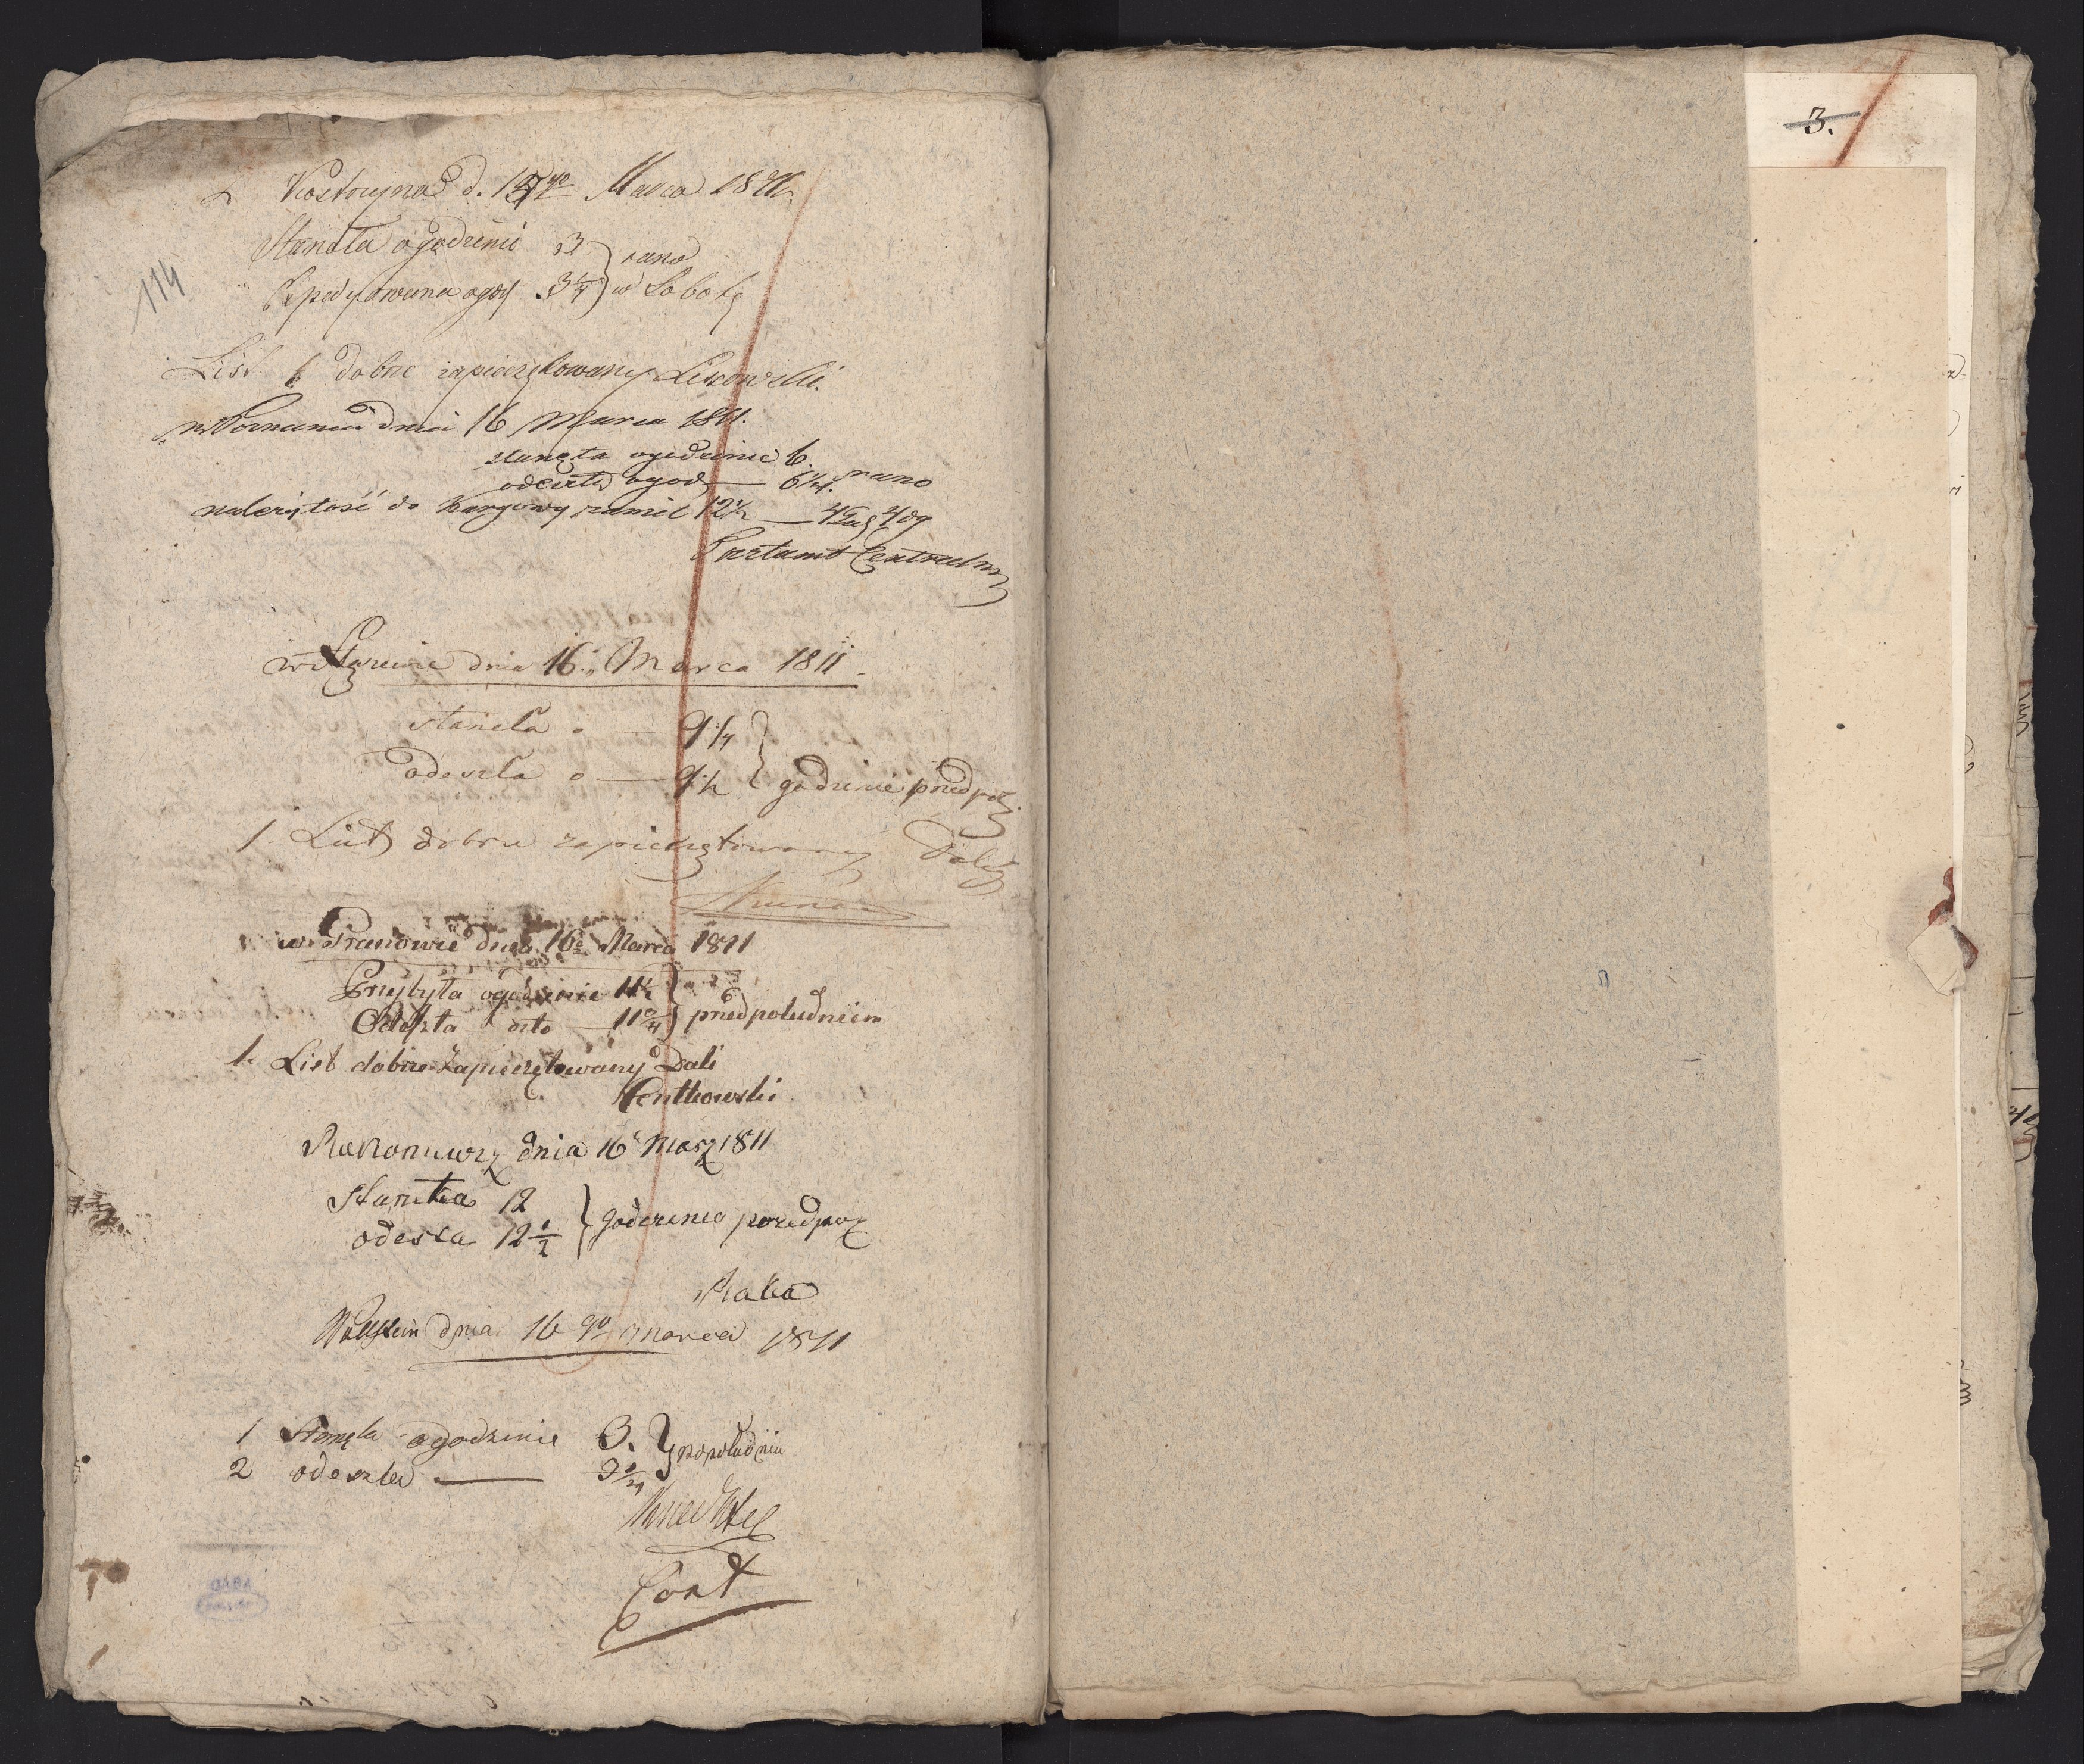 z Kostrzyna d. 16go Marca 1811.
Stanęła o godzinie 3 } rano
Expedyowana o god 3 1/4 } w Sobotę
114
List 1 dobrze zapieczętowany Liszowski.
w Poznaniu dnia 16 Marca 1811.
stanęła o godzinie 6.
odeszła o god — 6 1/4. rano
należytość do Kargowy za mil 12 1/2 —
Pocztamt Centralny
w Stęszewie dnia 16. Marca 1811
stanęła o — 9 1/4 }
odeszła o — 9 1/2 } godzinie przedpoł.
1. List dobrze zapieczętowany
w Ptaszkowie dnia 16o Marca 1811
Przybyła o godzinie 11 1/2 }
Odeszła dto — 11 3/4 } przedpołudniem
1. List dobrze Zapieczętowany Dali
Pentkowski
Rakoniwicy dnia 16 Marz 1811
Stanęła 12
odeszła 12 1/2 } godzinie przedpoł
Raka
Wollstein dnia 16 go marca 1811
1 Stanęła o godzinie 3. } popołudniu
2 odeszla — 3 1/4
Knechtel
Cont
3.